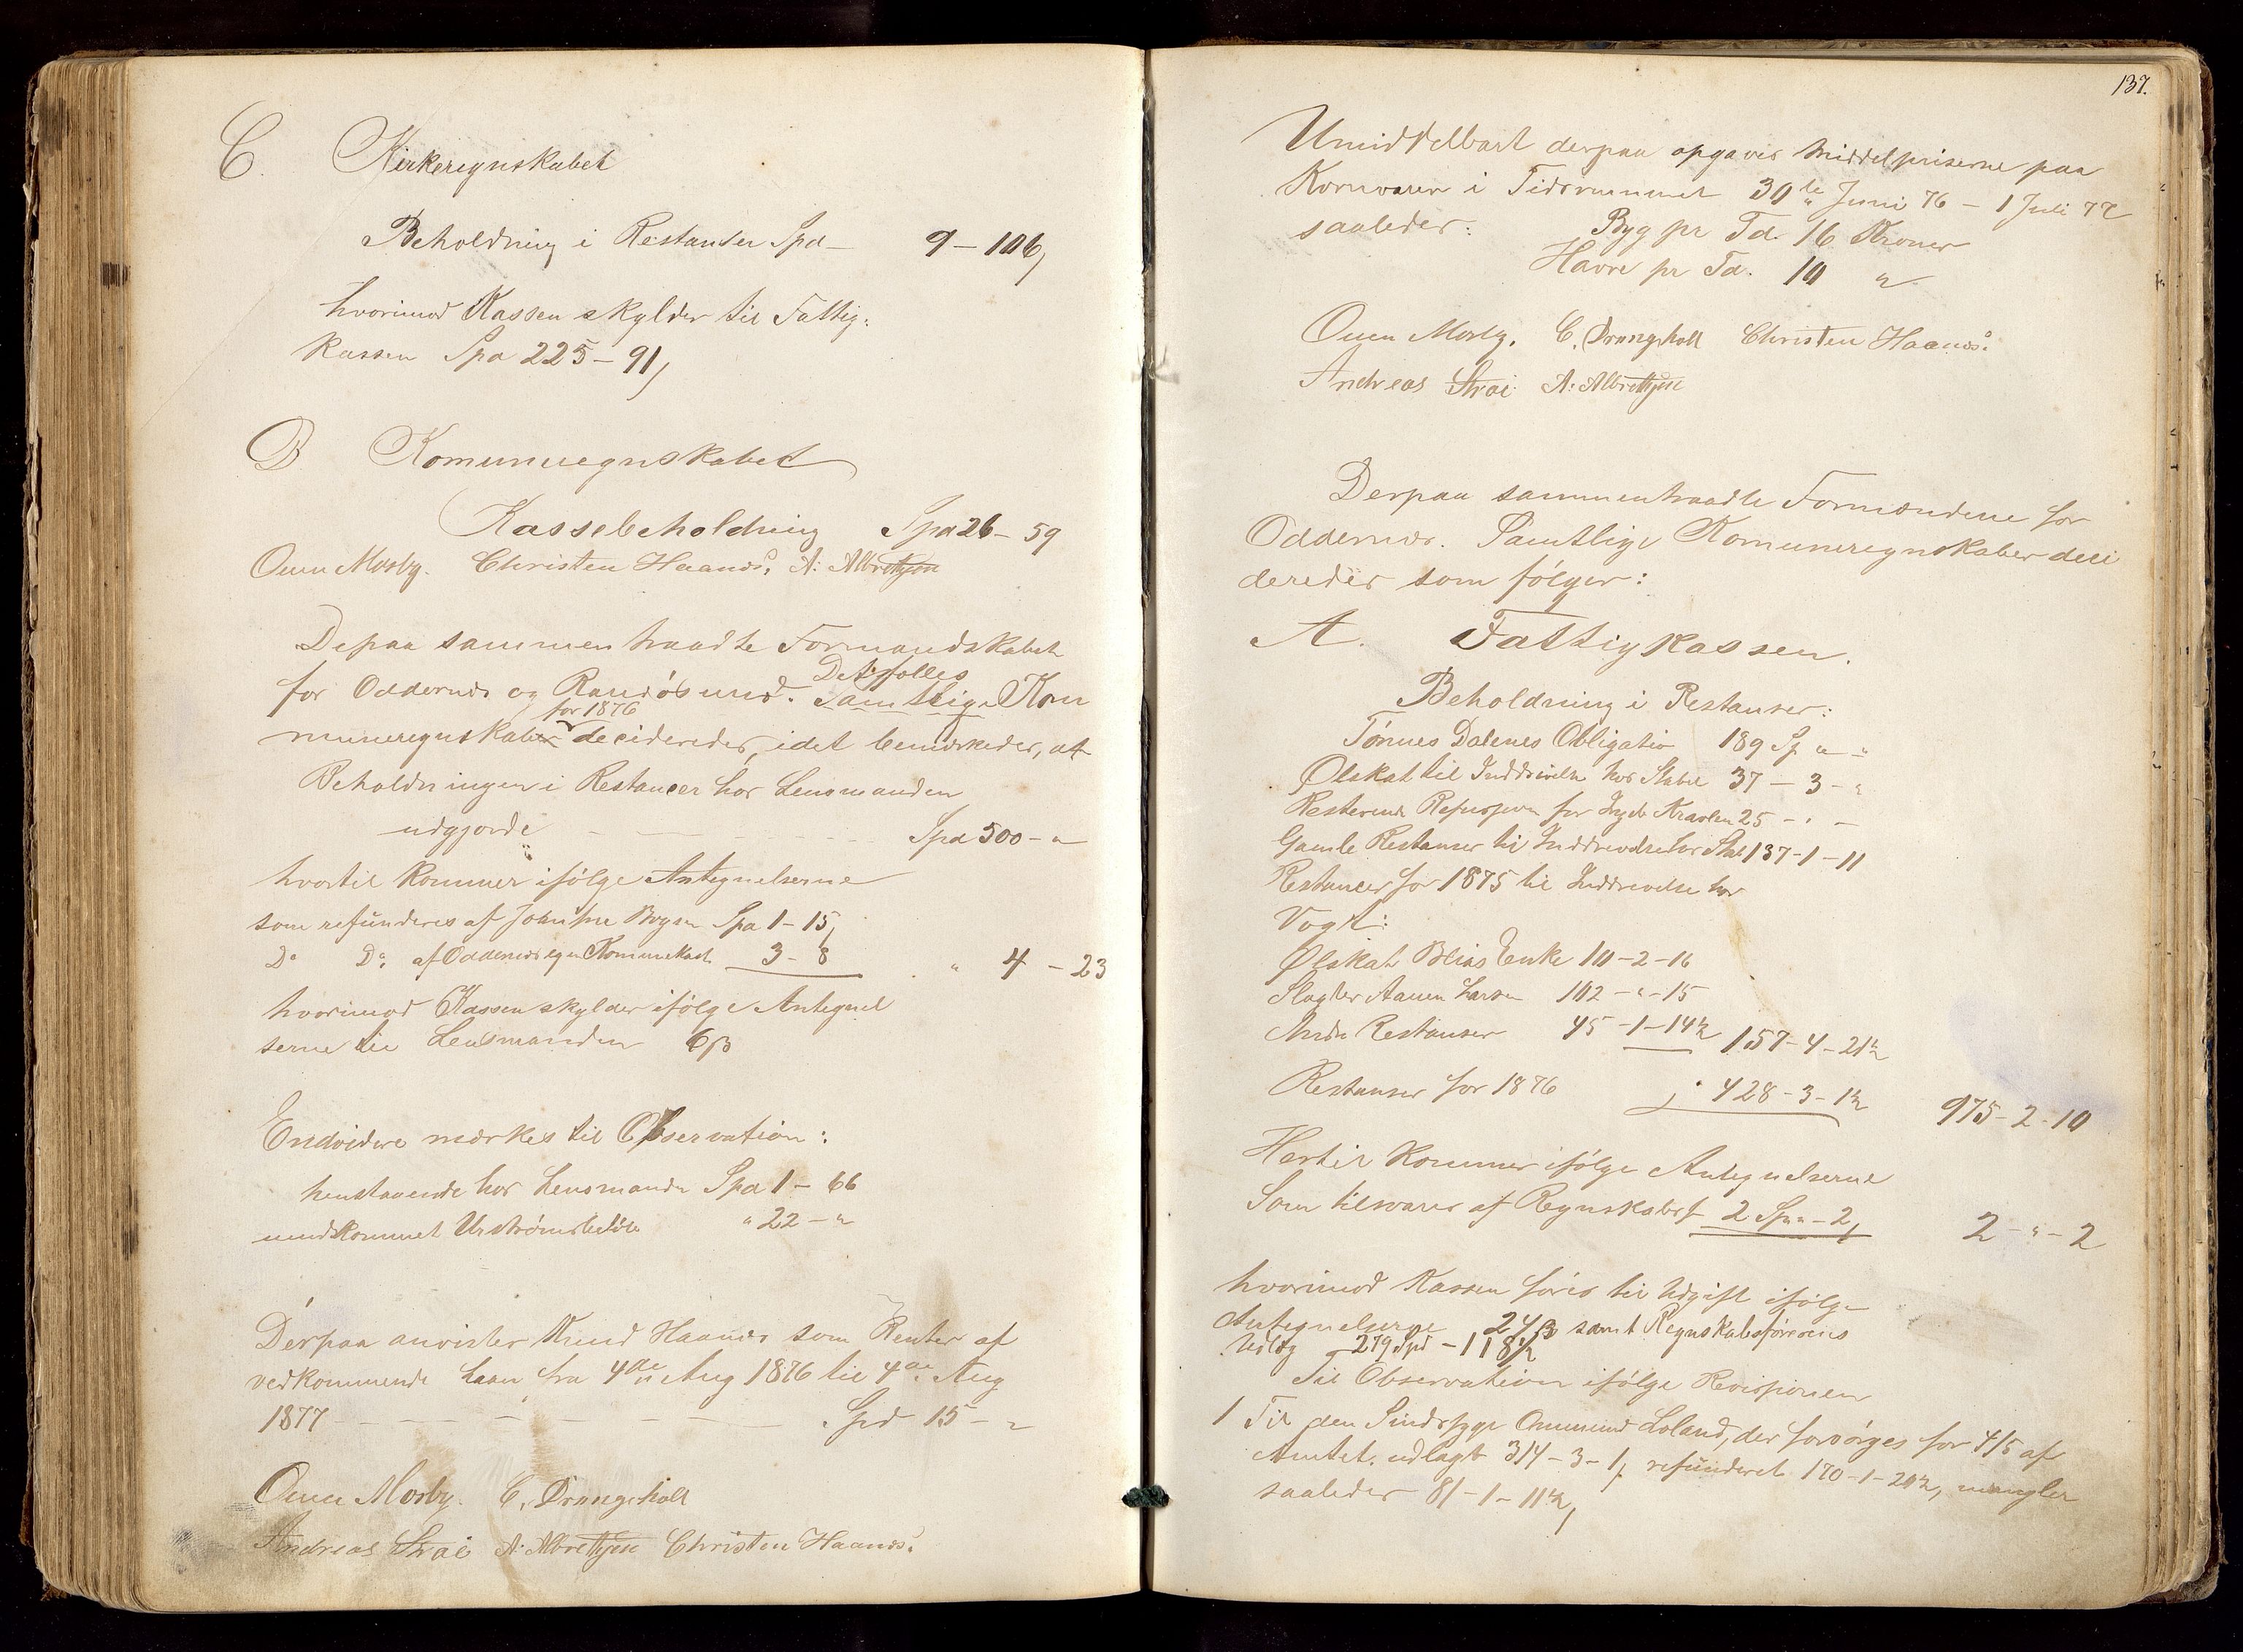 C. Kirkeregnskabet
Beholdning i Restantser Spd – 9 – 106,
hvorimod Kassen skylder til Fattig:
kassen Spd 225 – 91,
B Komuneregnskabet
Kassebeholdning Spd 26 – 59
Ouen Mosby. Christen Haanes. A: Albretsen
Depaa sammentraadte Formandskabet
for Oddernes og Randøsund. Detfælles
samtlige Kom
for 1876
muneregnskaber decideredes, idet bemærkedes, at
Beholdningen i Restancer hos Lensmanden
udgjorde – – – Spd 500 – "
hvortil kommer ifølge Antegnelserne
som refunderes af Bugsen Spd 1 – 15,
Do Do af Oddernes egen Kommunekasse 3 – 8 " 4 – 23
hvorimod Kassen skylder ifølge Antegnel
serne til Lensmanden 6 ß
Endvidere mærkes til Observation:
henstaaende hos Lensmanden Spd 1 – 66
" 22 – "
Derpaa anvistes Knud Haanes som Renter af
vedkommende Laan fra 4de Aug 1876 til 4de Aug
1877 – – – – – – Spd 15 – "
Ouen Mosby. C. Drangsholt
Andreas Strai A: Albretsen Christen Haanes.
137.
Umiddelbart derpaa opgaves Middelpriserne paa
Kornvarer i Tidsrummet 30te Juni 76 – 1 Juli 77
saaledes: Byg pr Td. 16 Kroner
Havre pr Td. 10 "
Ouen Mosby. C. Drangsholt Christen Haanes.
Andreas Strai A: Albretsen
Derpaa sammentraadte Formændene for
Oddernes. Samtlige Komuneregnskaber deci
deredes som følger:
A. Fattigkassen.
Beholdning i Restanser:
Tønnes Dalenes Obligatio 189 Sp " – "
Ølskat til Inddrivelse hos Stabel 37 – 3 – "
Resterende Refusjon for 25 – " –
Gamle Restanser til Inddrivelse hos Stab 137 – 1 – 11
Restancer for 1875 til Inddrivelse hos
Vogt:
Ølskat Enke 10 – 2 – 16
Slagter Aanen Larsen 102 – " – 15
Andre Restanser 45 – 1 – 14½ 157 – 4 – 21½
Restanser for 1876 428 – 3 – 1½ 975 – 2 – 10
Hertil kommer ifølge Antegnelserne
Som tilsvares af Regnskabsf 2 Sp " – 2, 2 – " – 2
hvorimod Kassen føres til Udgift ifølge
Antegnelserne 24 ß samt Regnskabsførerens
Udlæg 279 Spd – 1 18½
Til Observation ifølge Revisjonen
1 Til den Sindssyge Ommund Loland, der forsørges for 4/5 af
Amtet, udlagt 314 – 3 – 1, refunderet 170 – 1 – 20½, mangler
saaledes 81 – 1 – 11½,